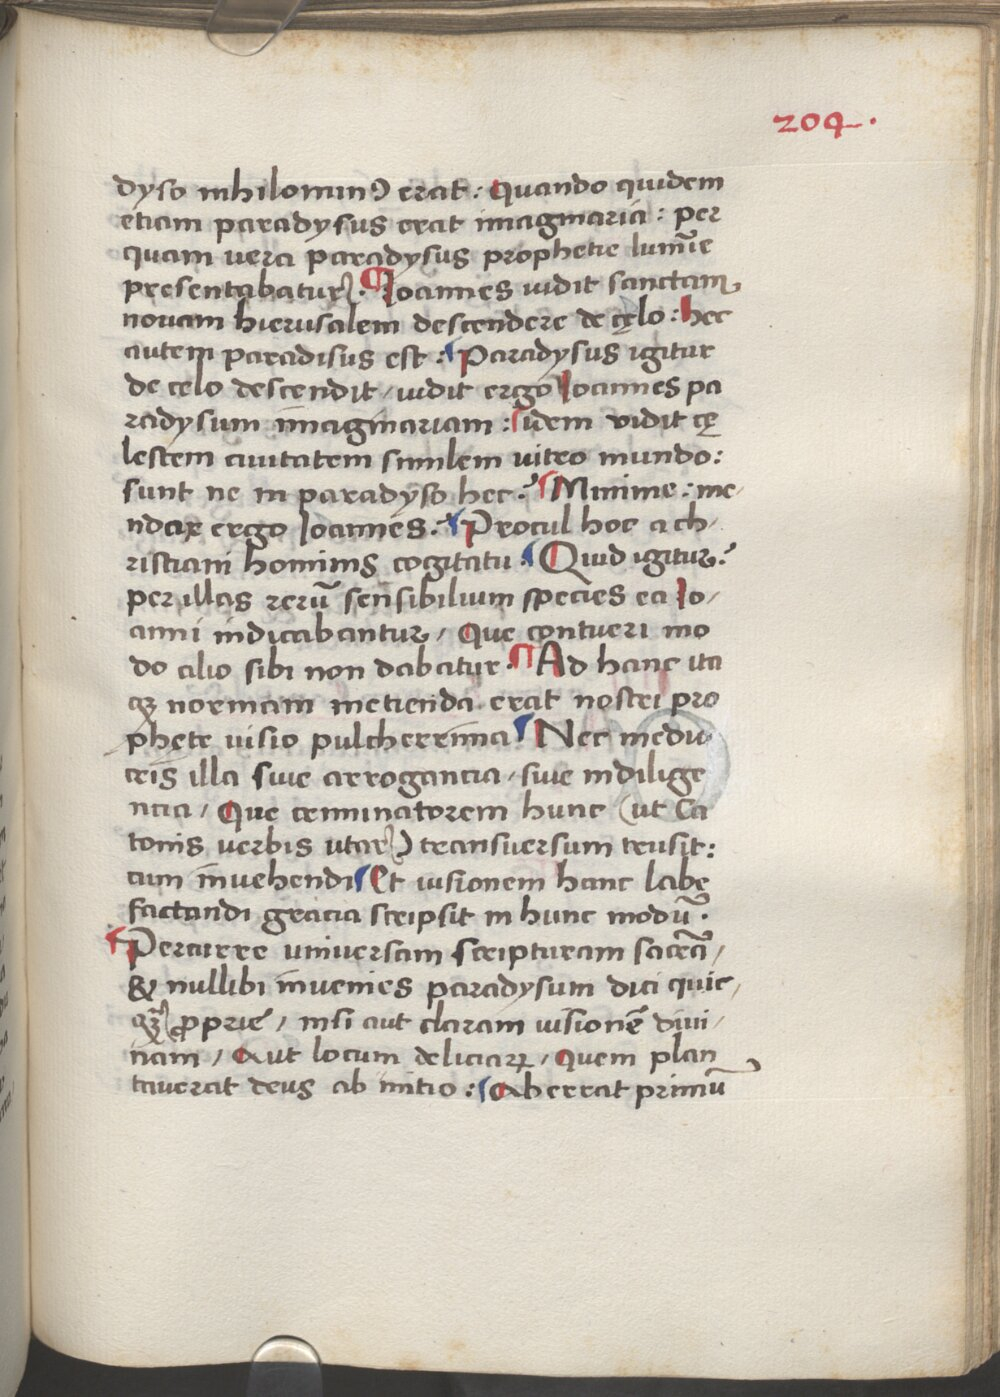 204.
dyso nihilominꝰ erat: Quando quidem
etiam paradysus erat imaginaria: per
quam vera paradysus prophetie lumīe
presentabatur. ¶Ioannes uidit sanctam
novam hierusalem descendere de cęlo: hec
autem paradisus est: ¶Paradysus igitur
de celo descendit, uidit ergo Ioannes pa
radysum imaginariam: ¶idem vidit cę
lestem ciuitatem similem uitro mundo:
sunt ne in paradyso hec? ¶Minime: me,
ndax ergo Ioannes? ¶Procul hoc a ch,
ristiani hominis cogitatu. ¶Quid igitur?
per illas rerū sensibilium species ea Io,
anni indicabantur, Que contueri mo
do alio sibi non dabatur. ¶Ad hanc ita
qꝫ normam metienda erat nostri pro
phęte uisio pulcherrima. ¶Nec mediu
cris illa siue arrogancia, siue indilige
ncia, Que criminatorem hunc (ut Ca
tonis verbis utar) transuersum trusit:
cum inuehendi ¶Et uisionem hanc labe
factandi gracia scripsit in hunc modū.
¶Percurre universam scripturam sacrā,
& nullibi invenies paradysum dici quic,
qꝫ̄ ꝓprie, nisi aut claram uisionē divi,
nam, Aut locum deliciaꝝ, Quem plan
taverat deus ab initio: ¶Aberrat primū